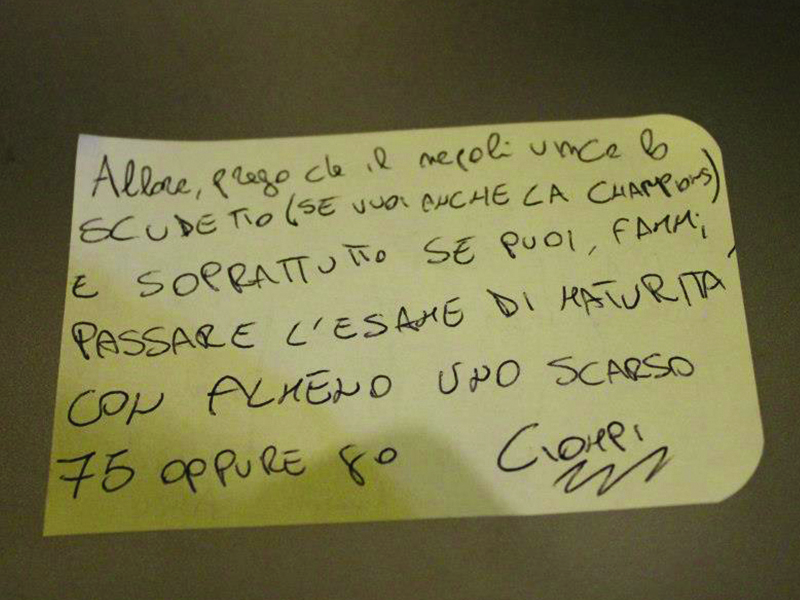 Allora, prego che il napoli vince lo
SCUDETTO (SE VUOI ANCHE LA CHAMPIONS)
E SOPRATTUTTO SE PUOI, FAMMI
PASSARE L'ESAME DI MATURITÀ
CON ALMENO UNO SCARSO
75 OPPURE 80 CIOMPI